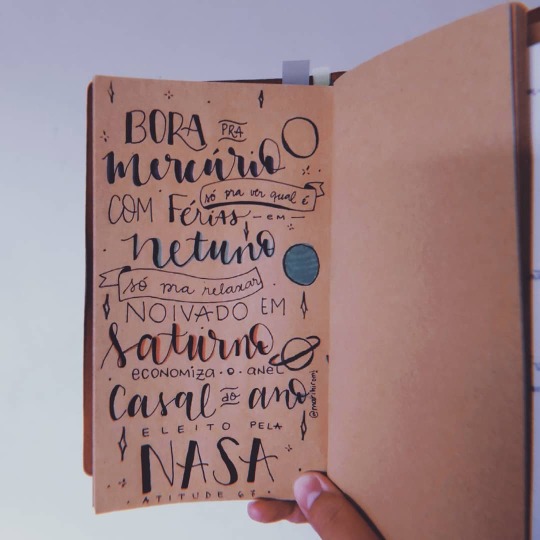 BORA PRA
mercúrio
só pra ver qual é
COM FériAS - em -
netuno
só pra relaxar
NOIVADO EM
Saturno
economiza • o • anel
Casal do ano
ELEITO PELA
NASA
• ATITUDE 67 •
@marihironj